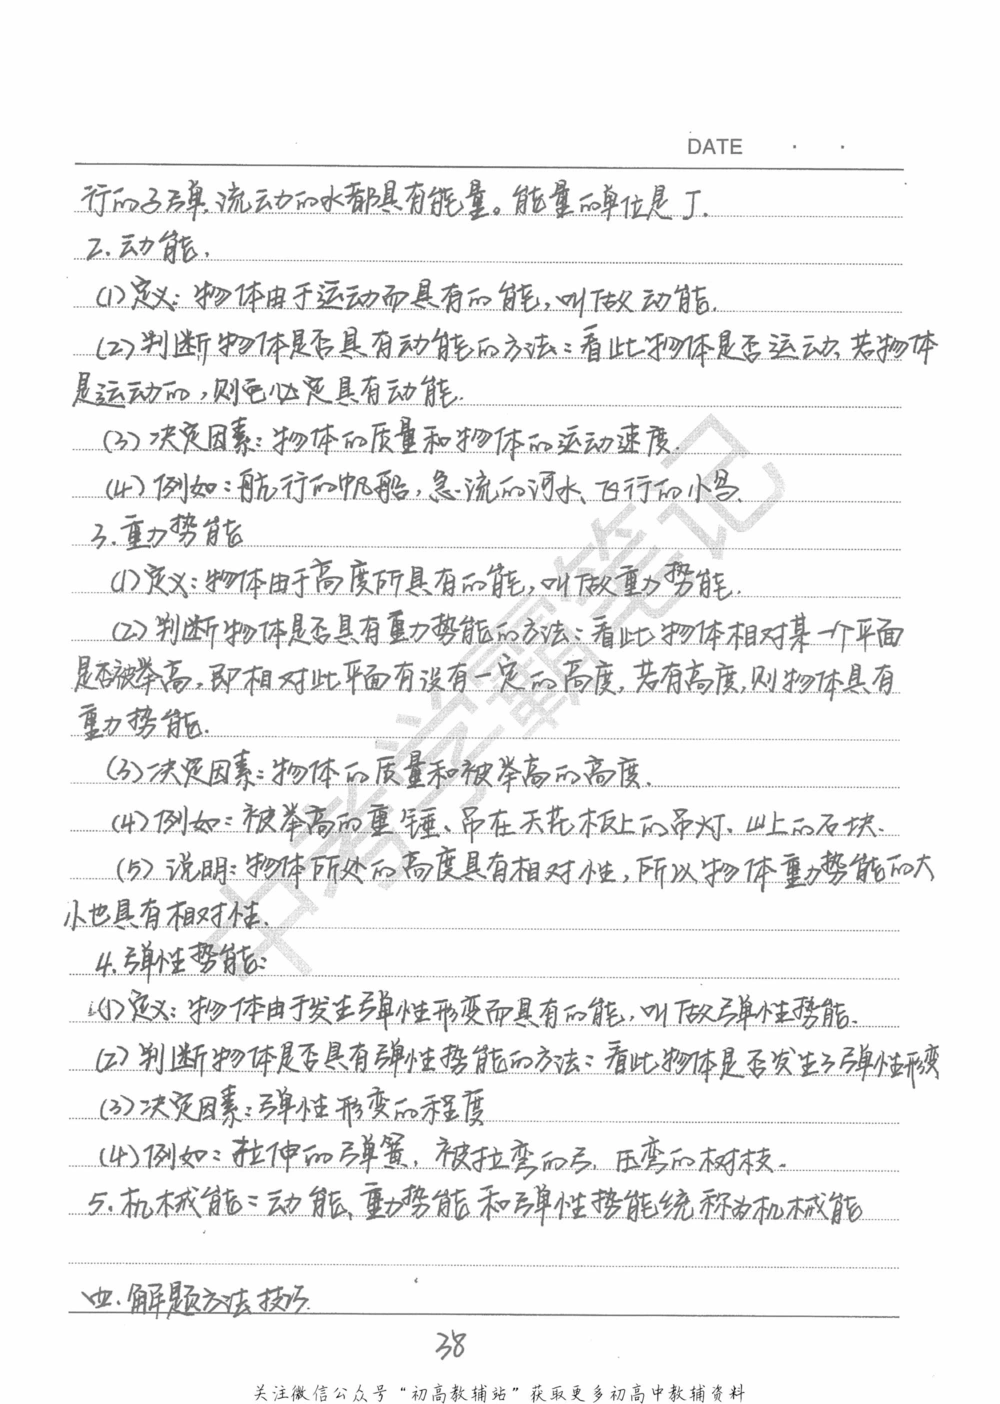 DATE · ·
行的子弹、流动的水都具有能量。能量的单位是J.
2.动能.
(1)定义:物体由于运动而具有的能,叫做动能.
(2)判断物体是否具有动能的方法:看此物体是否运动、若物体
是运动的,则它必定具有动能.
(3)决定因素:物体的质量和物体的运动速度.
(4)例如:航行的帆船,急流的河水、飞行的小鸟.
3.重力势能
(1)定义:物体由于高度所具有的能,叫做重力势能.
(2)判断物体是否具有重力势能的方法:看此物体相对某一个平面
是否被举高,即相对此平面有没有一定的高度,若有高度,则物体具有
重力势能.
(3)决定因素:物体的质量和被举高的高度.
(4)例如:被举高的重锤、吊在天花板上的吊灯、山上的石块.
(5)说明:物体所处的高度具有相对性,所以物体重力势能的大
小也具有相对性.
4.弹性势能:
(1)定义:物体由于发生弹性形变而具有的能,叫做弹性势能.
(2)判断物体是否具有弹性势能的方法:看此物体是否发生了弹性形变
(3)决定因素:弹性形变的程度
(4)例如:拉伸的弹簧,被拉弯的弓,压弯的树枝.
5.机械能:动能、重力势能和弹性势能统称为机械能
四.解题方法技巧.
38
关注微信公众号“初高教辅站”获取更多初高中教辅资料
中考学霸笔记